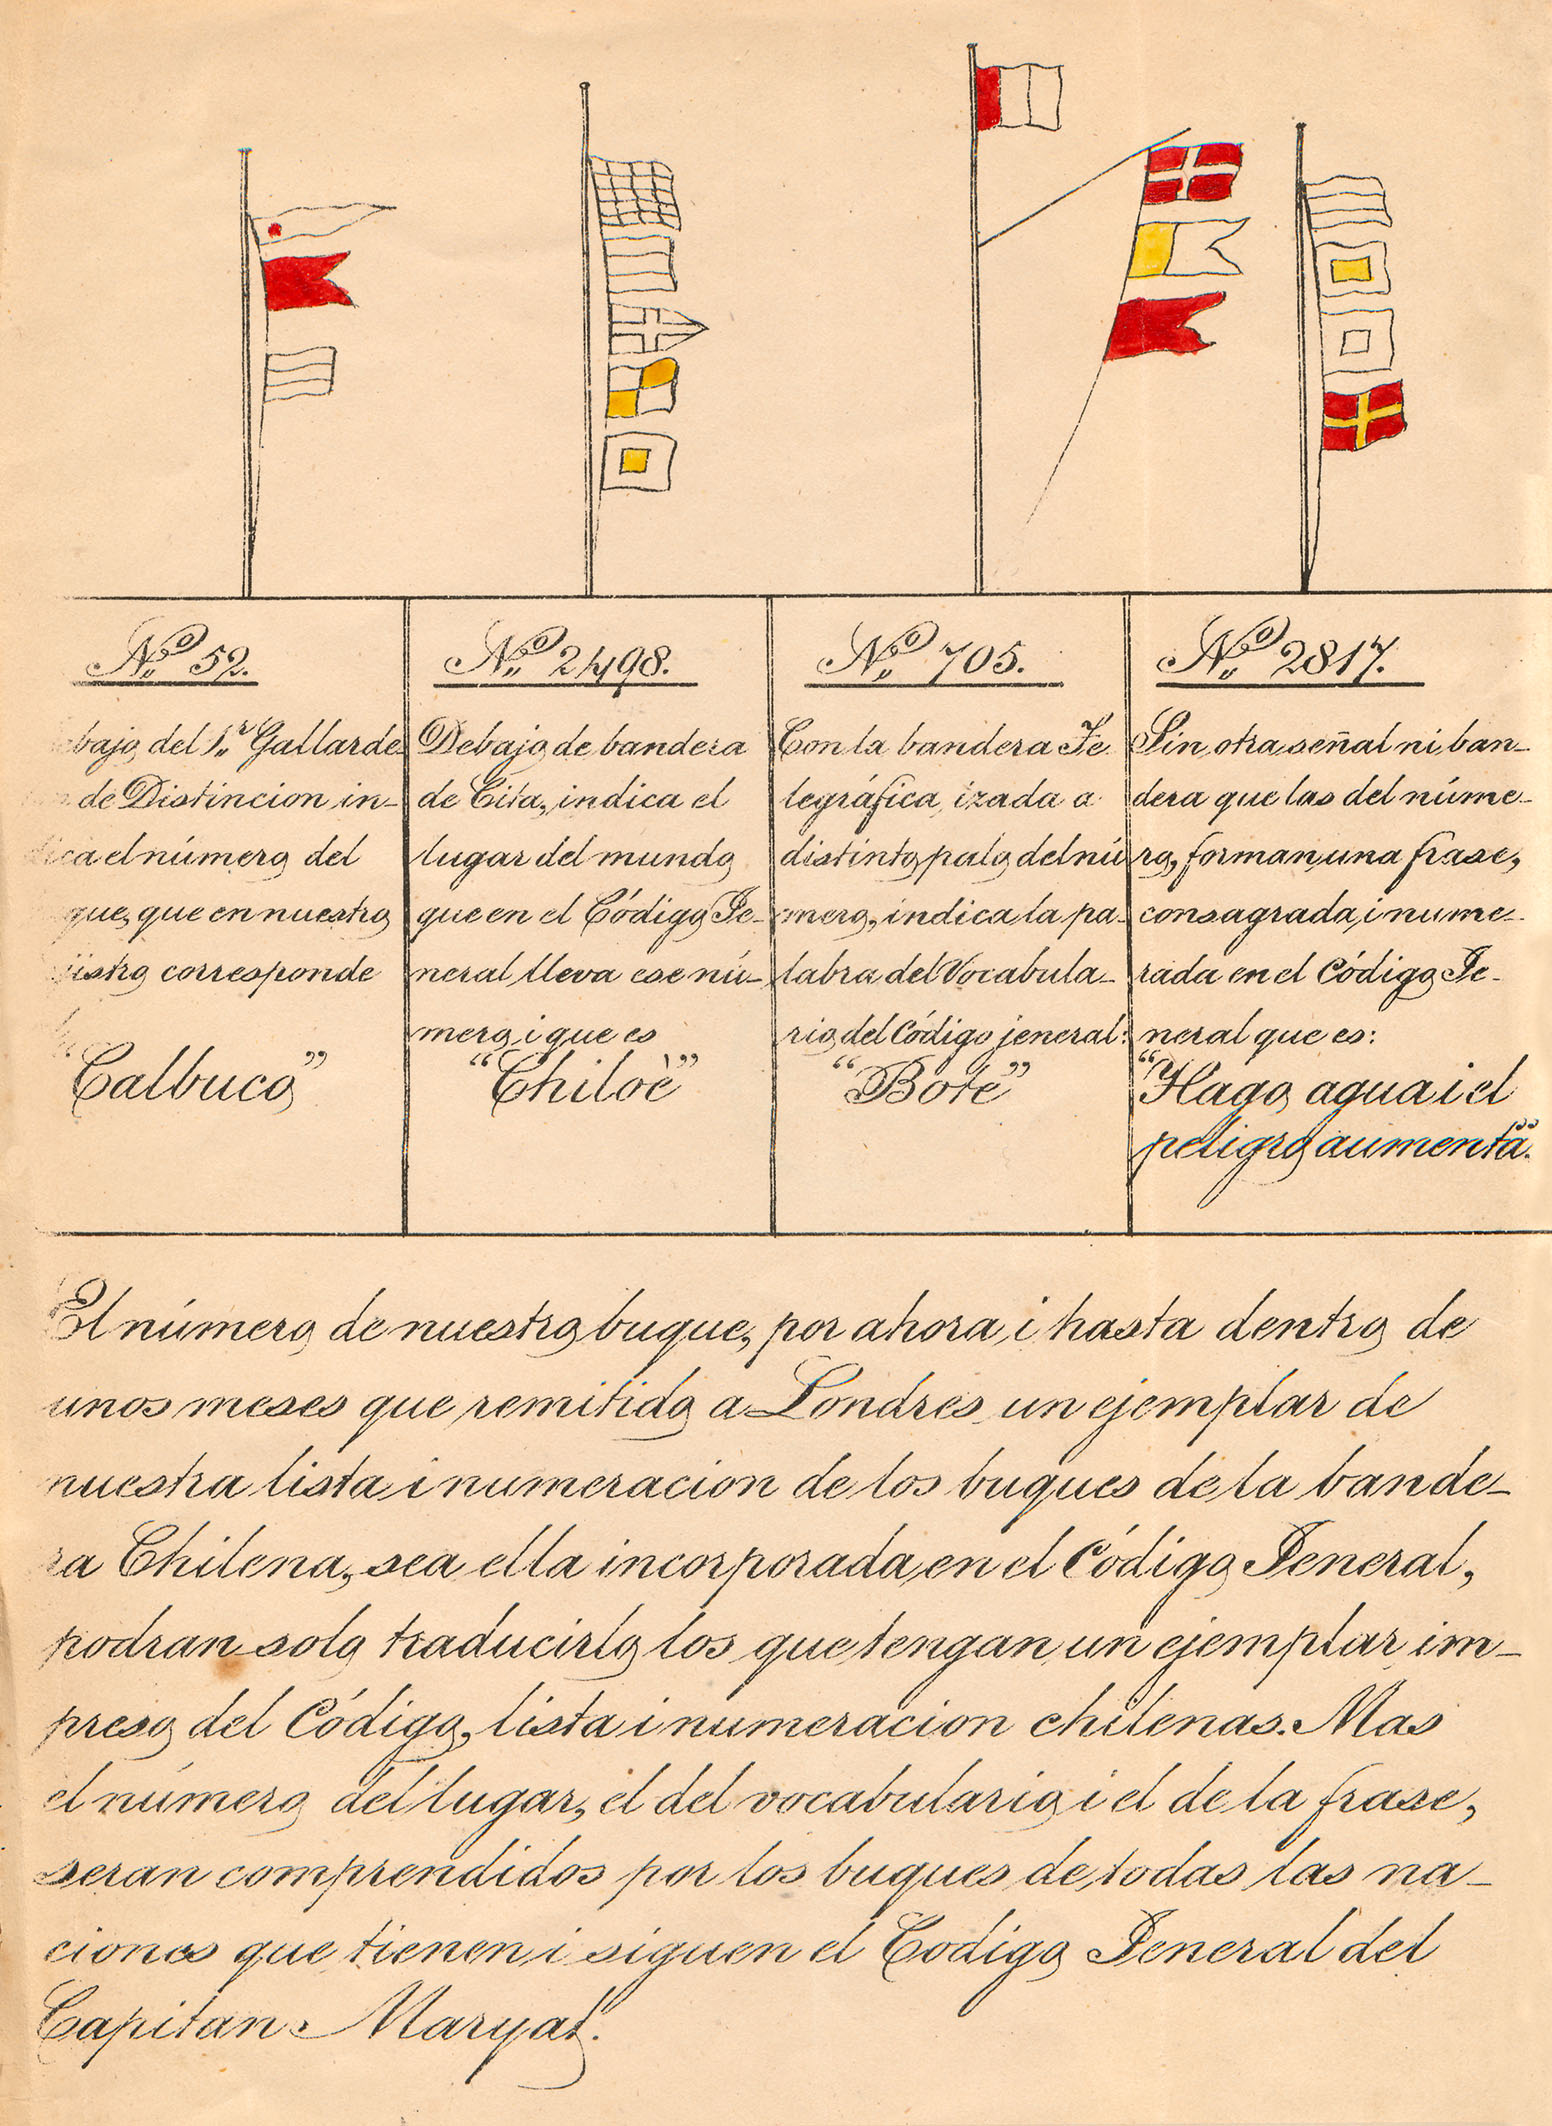 No. 52.
bajo del 1.r Gallarde
de Distincion in-
ca el número del
que, que en nuestro
istro corresponde
"Calbuco"
No. 2498.
Debajo de bandera
de Cita, indica el
lugar del mundo
que en el Código Je-
neral lleva ese nú-
mero i que es
"Chiloè"
No. 705.
Con la bandera Te
legráfica, izada a
distinto palo del nú
mero, indica la pa-
labra del Vocabula-
rio del Código jeneral:
"Bote"
No. 2817.
Sin otra señal ni ban-
dera que las del núme-
ro, forman una frase,
consagrada i nume-
rada en el Código Je-
neral que es:
"Hago agua i el
peligro aumenta".
El número de nuestro buque, por ahora i hasta dentro de
unos meses que remitido a Londres un ejemplar de
nuestra lista i numeracion de los buques de la bande-
ra Chilena, sea ella incorporada en el Código Jeneral,
podran solo traducirlo los que tengan un ejemplar im-
preso del Código, lista i numeracion chilenas. Mas
el número del lugar, el del vocabulario i el de la frase,
seran comprendidos por los buques de todas las na-
ciones que tienen i siguen el Codigo Jeneral del
Capitan Maryat.